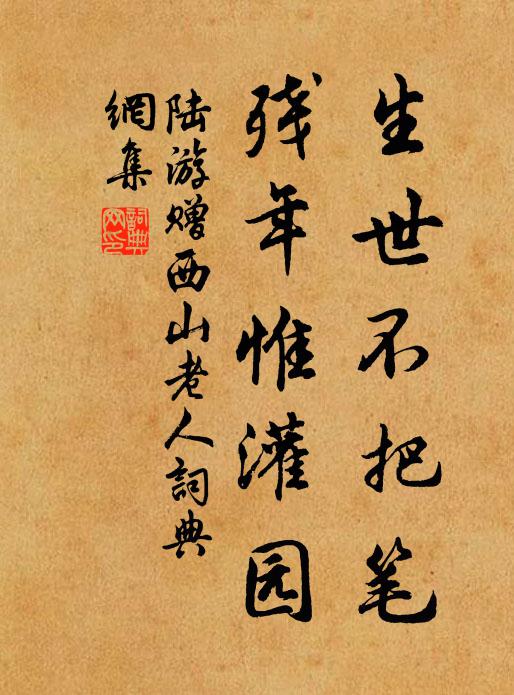 生世不把笔
残年惟灌园
陆游赠西山老人詞典
網集
詞典網印